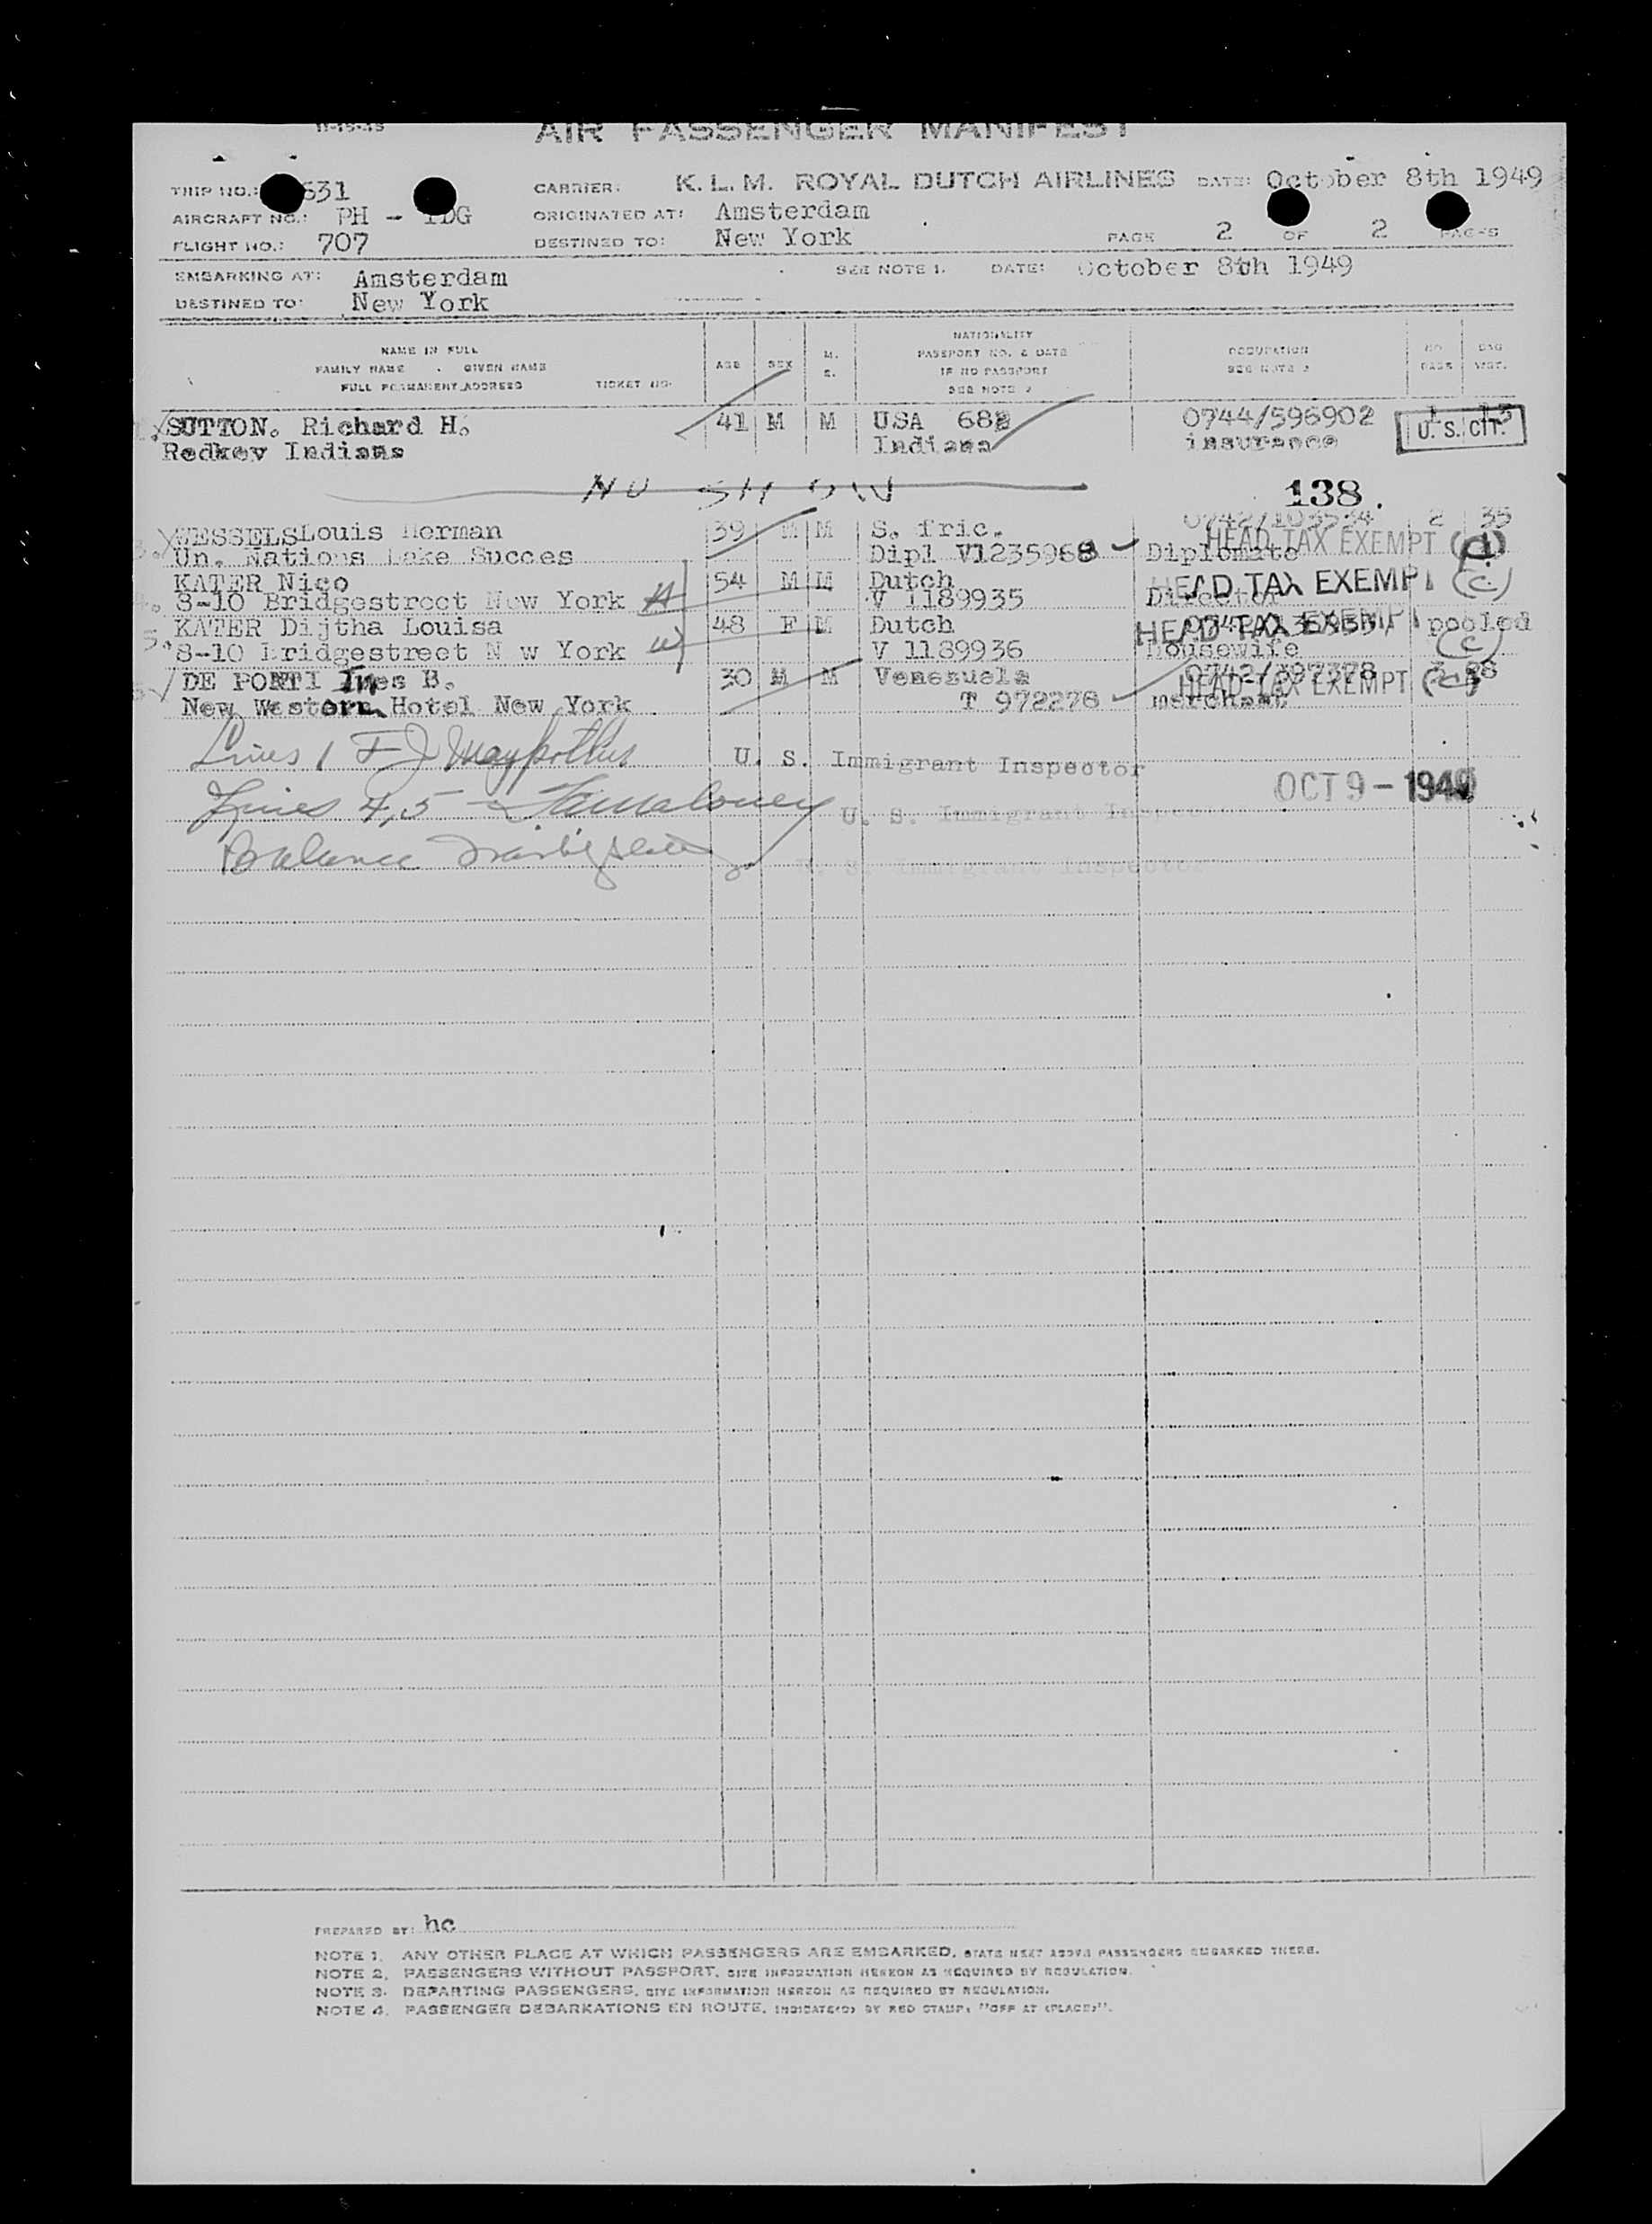 11-15-45
AIR PASSENGER MANIFEST
TRIP NO.: 631 CARRIER: K.L.M. ROYAL DUTCH AIRLINES DATE: October 8th 1949
AIRCRAFT NO.: PH - TDG ORIGINATED AT: Amsterdam
FLIGHT NO.: 707 DESTINED TO: New York PAGE 2 OF 2 PAGES
EMBARKING AT: Amsterdam SEE NOTE 1. DATE: October 8th 1949
DESTINED TO: New York
NAME IN FULL
FAMILY NAME . GIVEN NAME
FULL PERMANENT ADDRESS TICKET NO.
AGE SEX M. S.
NATIONALITY
PASSPORT NO. & DATE
IF NO PASSPORT
SEE NOTE 2
OCCUPATION
SEE NOTE 3
NO BAGS BAG WGT.
SUTTON. Richard H. 41 M M USA 682 0744/596902 1 15
Redkey Indiana Indiana insurance U.S. CIT.
NO SHOW 138.
WESSELS Louis Herman 39 M M S. fric. 0742/103534 2 35
Un. Nations Lake Succes Dipl V1235968 Diplomate HEAD TAX EXEMPT
KATER Nico 54 M M Dutch HEAD TAX EXEMPT (c)
8-10 Bridgestreet New York V 1189935 Director
5. KATER Dijtha Louisa 48 F M Dutch HEAD TAX EXEMPT pooled
8-10 Bridgestreet N w York V 1189936 housewife (c)
DE PONTI Ines B. 30 M M Venezuela 0742/397378
New Western Hotel New York T 972278 merchant HEAD TAX EXEMPT (c)
Lines 1 F J U. S. Immigrant Inspector
OCT 9 - 1949
Lines 4,5 U. S. Immigrant Inspec
Balance U. S. Immigrant Inspector
PREPARED BY: hc
NOTE 1. ANY OTHER PLACE AT WHICH PASSENGERS ARE EMBARKED, STATE NEXT ABOVE PASSENGERS EMBARKED THERE.
NOTE 2. PASSENGERS WITHOUT PASSPORT, GIVE INFORMATION HEREON AS REQUIRED BY REGULATION.
NOTE 3. DEPARTING PASSENGERS, GIVE INFORMATION HEREON AS REQUIRED BY REGULATION.
NOTE 4. PASSENGER DEBARKATIONS EN ROUTE, INDICATE(D) BY RED STAMP: "OFF AT (PLACE)".